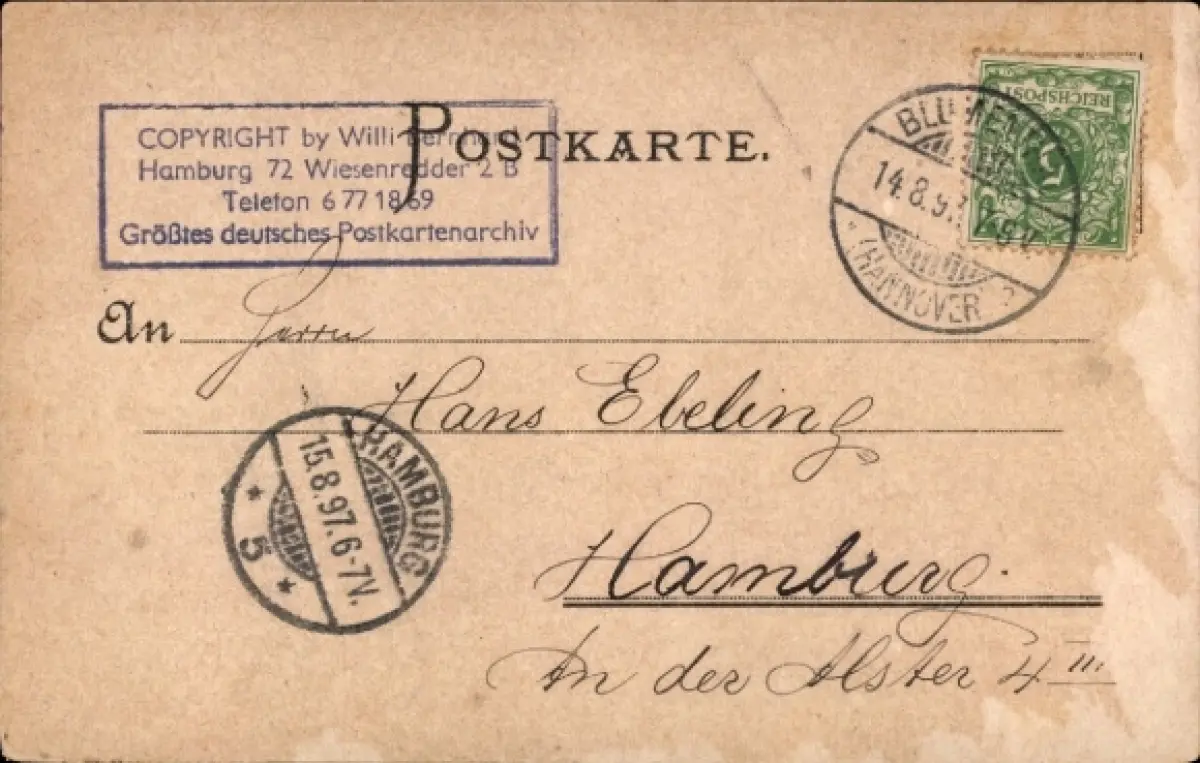 COPYRIGHT by Willi
Hamburg 72 Wiesenredder 2 B
Telefon 6 77 18 69
Größtes deutsches Postkartenarchiv
POSTKARTE.
REICHSPOST
5
14.8.97. V.
(HANNOVER)
An Herrn
Hans Ebeling
HAMBURG
15.8.97. 6-7V.
* 5 *
Hamburg.
An der Alster 4 III.